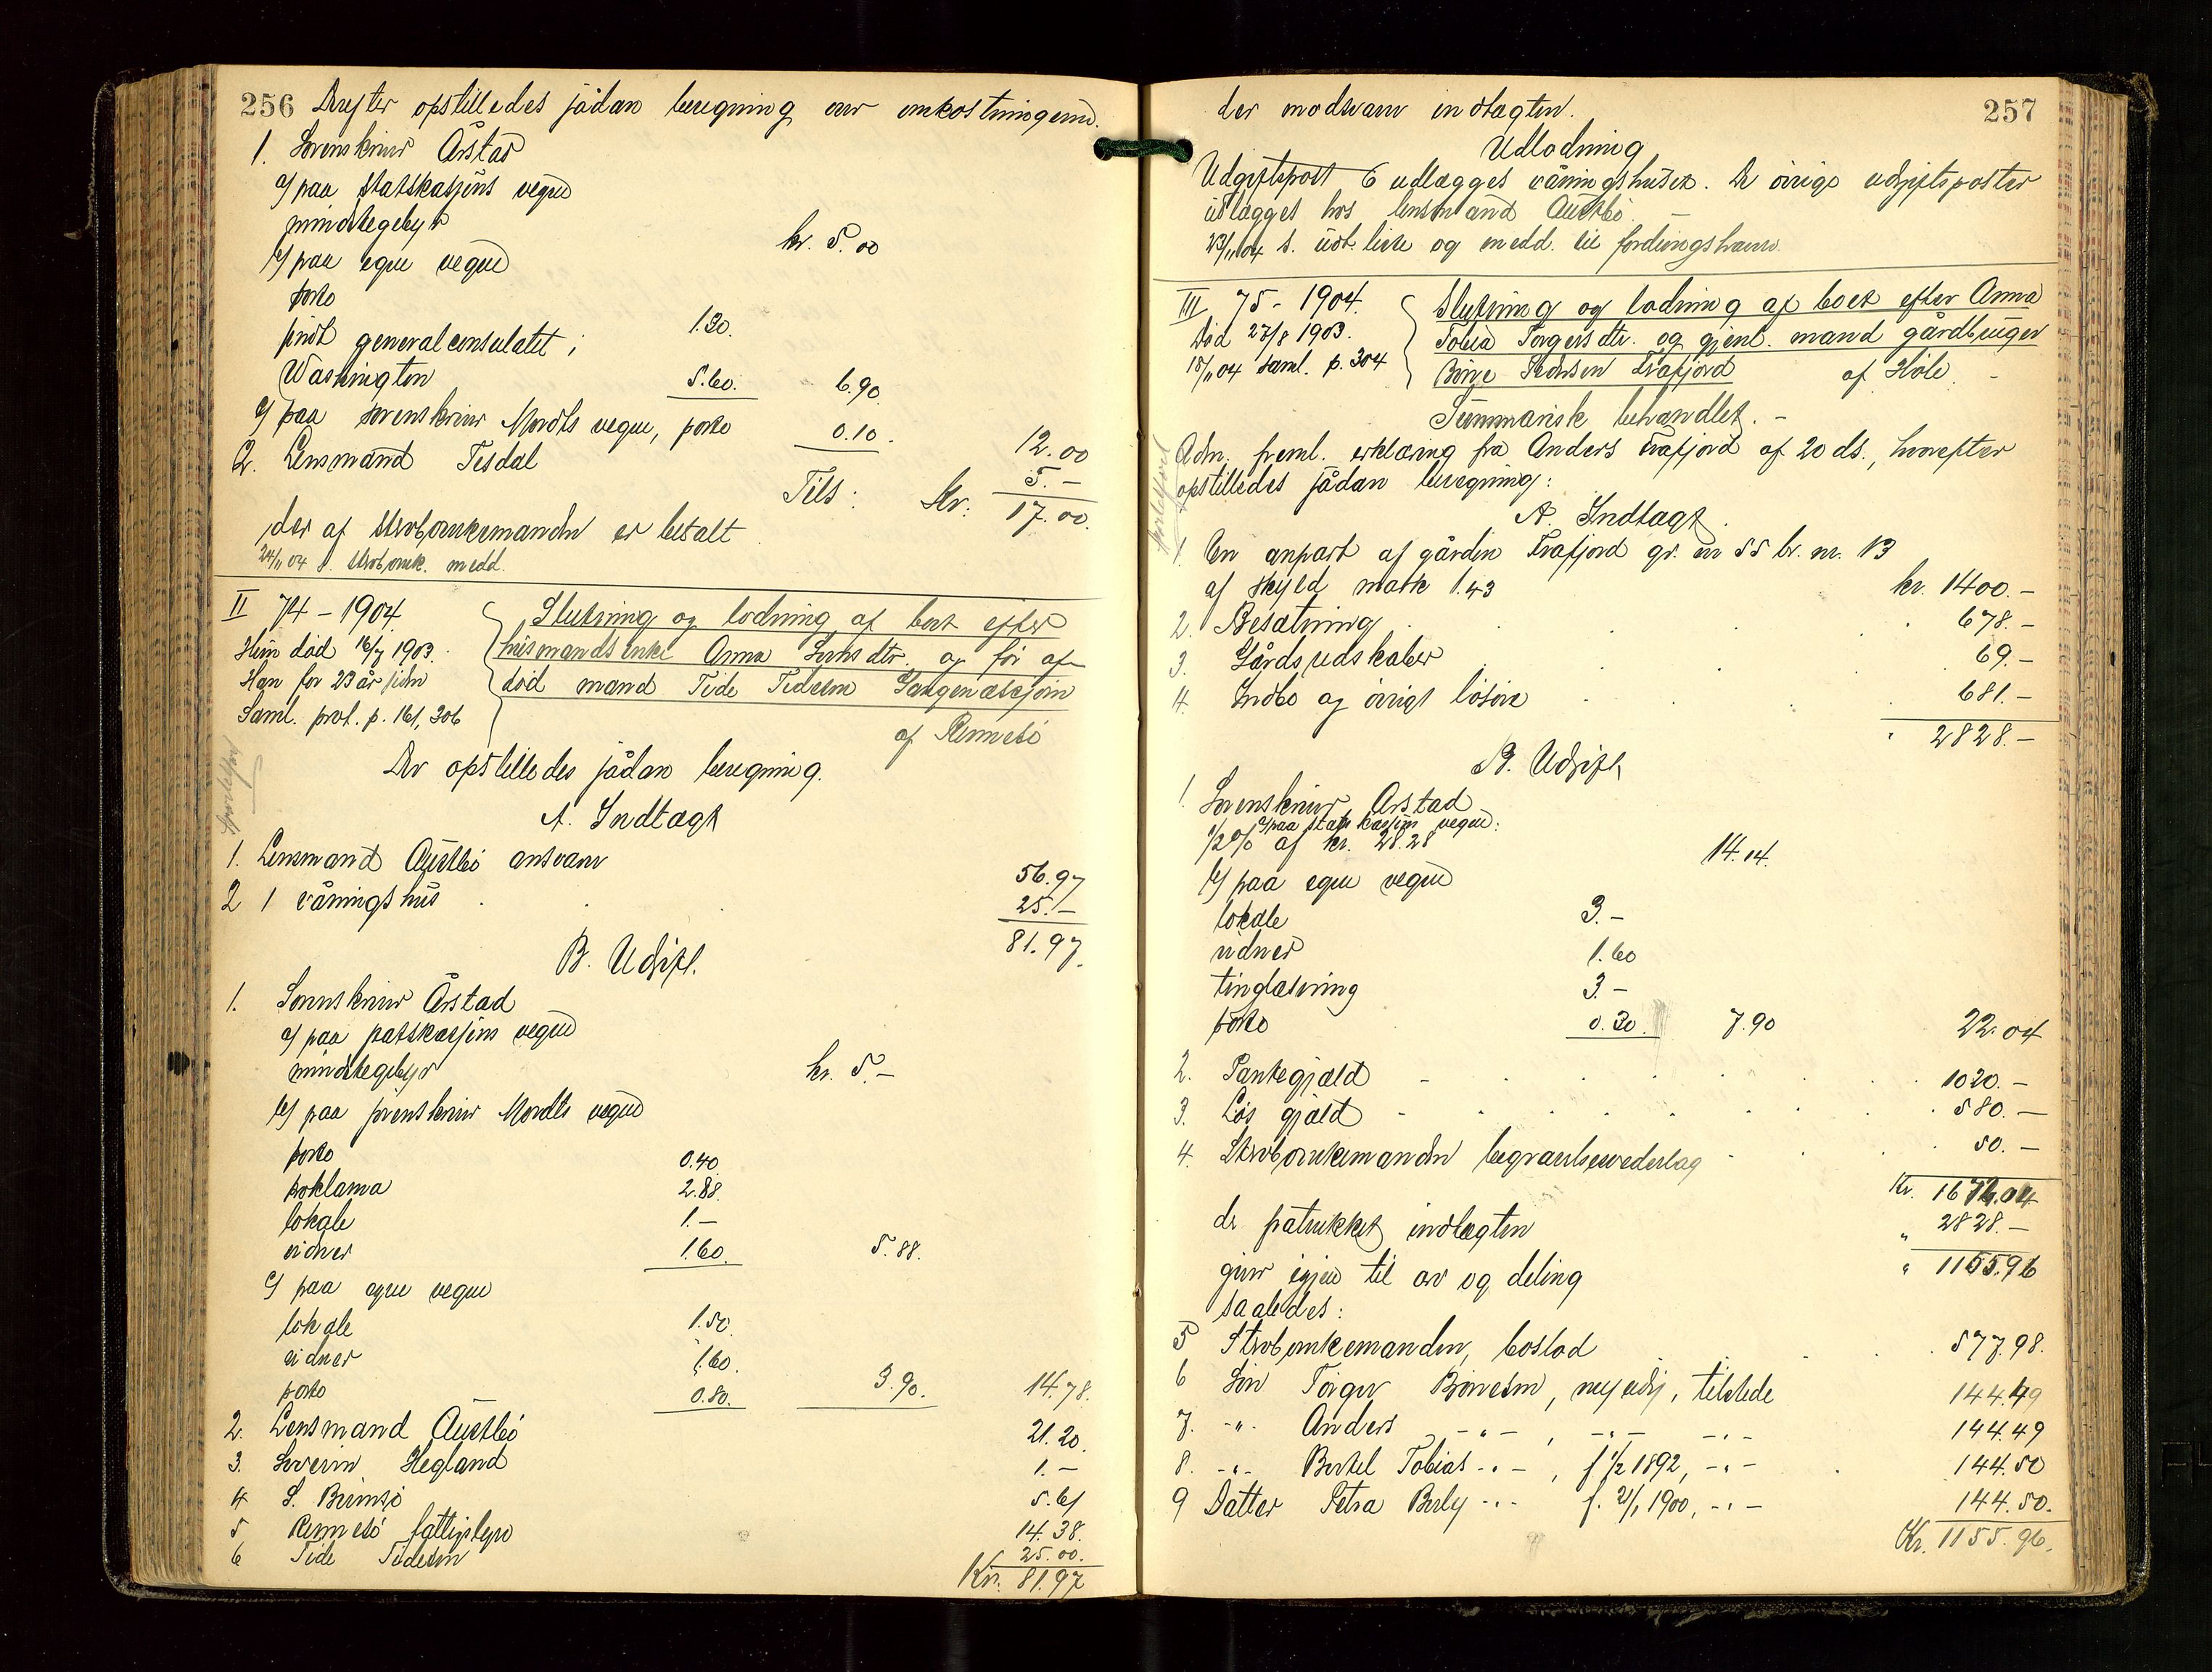 256 Derefter opstilledes sådan beregning over omkostningerne.
1. Sorenskriver Årstad
a/ paa statskassens vegne
mindstegebyr kr. 5.00
b/ paa egne vegne
porto 1.30.
sendt generalconsulatet i
Washington 5.60. 6.90
c/ paa sorenskriver Mordts vegne, porto 0.10. 12.00
2. Lensmand Tesdal 5.–
Tils: Kr. 17.00.
der af stervbonkemanden er betalt.
24/11 04 s. stervbonk. medd.
II 74 – 1904
Hun död 16/7 1903.
Han for 23 år siden
Saml. prot. p. 161, 306
Slutning og lodning af boet efter
husmandsenke Anna Larsdtr. og før af-
död mand Tide Tidesen
af Rennesö
Der opstilledes sådan beregning.
A. Indtægt
1. Lensmand Austbö ansvarer 56.97
2 1 våningshus 25.–
81.97
B. Udgift.
1. Sorenskriver Årstad
a/ paa statskassens vegne
mindstegebyr kr. 5.–
b/ paa sorenskriver Mordts vegne
porto 0.40
proklama 2.88.
lokale 1.–
vidner 1.60. 5.88.
c/ paa egne vegne
lokale 1.50.
vidner 1.60.
porto 0.80. 3.90. 14.78.
2. Lensmand Austbö 21.20.
3. Severin Hegland 1.–
4 S. Brimsö 5.61
5 Rennesö fattigstyre 14.38.
6 Tide Tidesen 25.00.
Kr. 81.97
257
der modsvarer indtægten.
Udlodning
Udgiftspost 6 udlægges våningshuset. De övrige udgiftsposter
udlægges hos lensmand Austbö. –
23/11 04 s. udt. liste og medd. til fordringshaver.
III 75 – 1904.
Död 27/8 1903.
18/11 04 saml. p. 304
Slutning og lodning af boet efter Anna
Tobia Torgersdtr. og gjenl. mand gårdbruger
Börge Frafjord af Höle. –
Summarisk behandlet. –
Adm. freml. erklæring fra Anders Frafjord af 20 ds., hvorefter
opstilledes sådan beregning:
A. Indtægt.
1. En anpart af gården Frafjord gr. nr 55 br. nr. 13
af skyld mark 1.43 kr. 1400.–
2. Besætning 678.–
3. Gårdsredskaber 69.–
4. Indbo og övrigt lösöre 681.–
" 2828.–
B. Udgift
1. Sorenskriver Årstad
a/ paa statskassens vegne:
1/2 % af kr. 2828 14.14.
b/ paa egne vegne
lokale 3.–
vidner 1.60
tinglæsning 3.–
porto 0.30. 7.90 22.04
2. Pantegjæld – 1020.–
3. Lös gjæld – 580.–
4. Stervbonkemanden begravelsesvederlag 50.–
Kr. 1672.04
der fratrukket indtægten " 2828.–
giver igjen til arv og deling " 1155.96
saaledes:
5 Stervbonkemanden, boslod 577.98.
6 Sön Torger Börresen, myndig, tilstede 144.49
7. –"– Anders –"–, –"– –"– 144.49
8. –"– Bertel Tobias –"–, f 1/2 1892, –"– 144.50
9 Datter Petra Berly –"– f. 21/1 1900, –"– 144.50.
Kr. 1155.96.